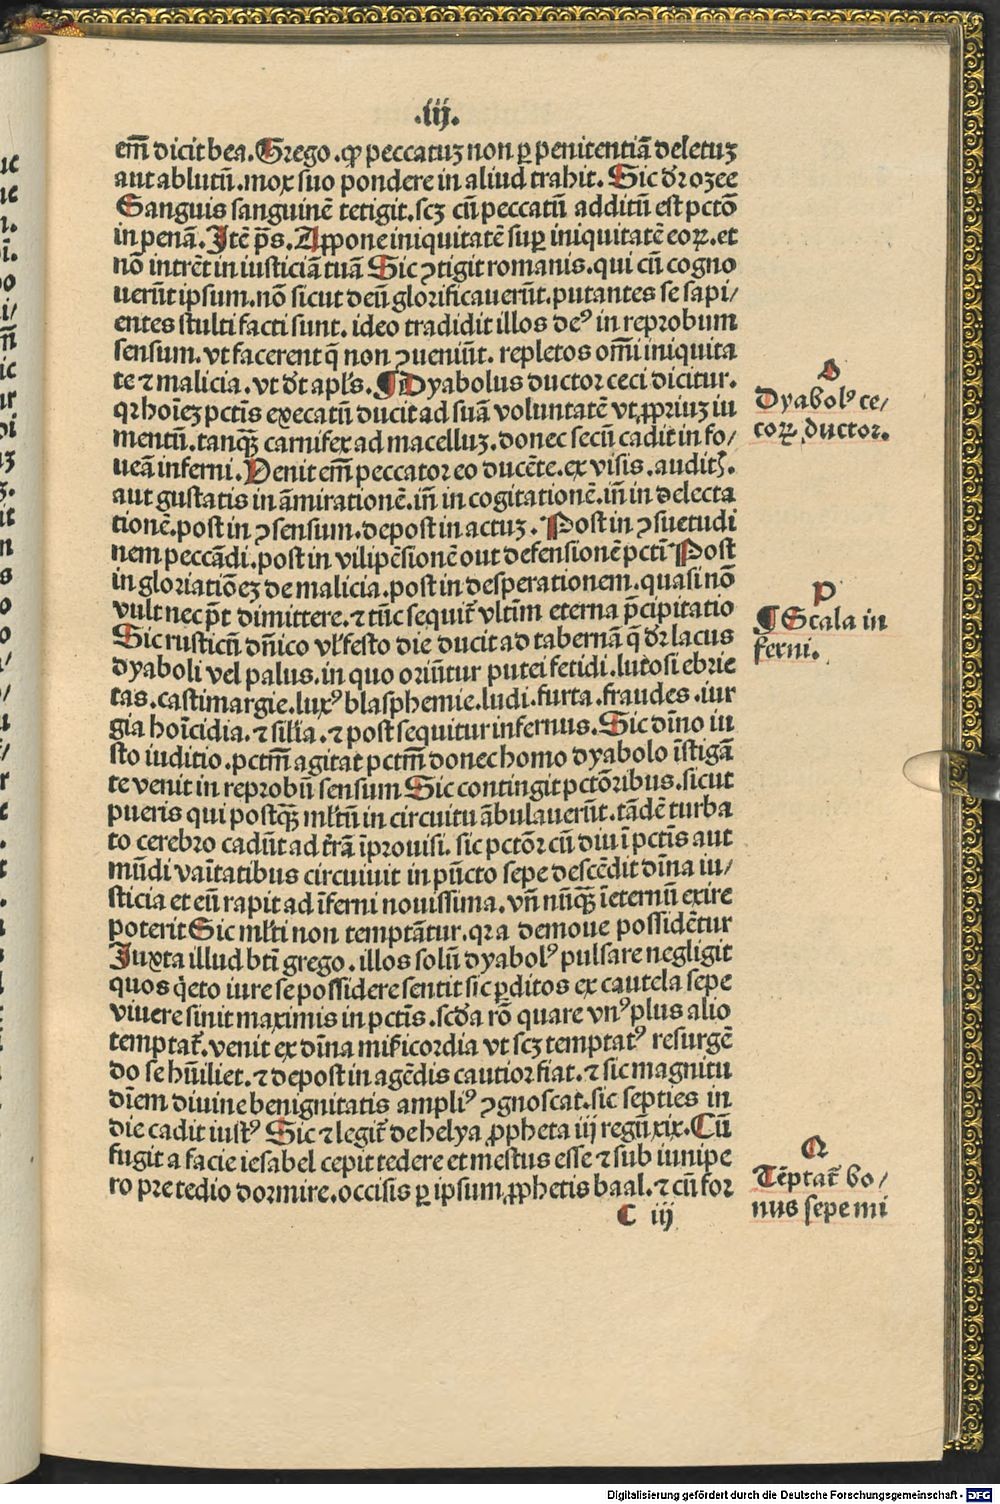 .iij.
em̄ dicit bea. Grego. ꝙ peccatuꝫ non ꝑ penitentiā deletuꝫ
aut ablutū. mox suo pondere in aliud trahit. Sic dr̄ ozee
Sanguis sanguinē tetigit. scꝫ cū peccatū additū est pctō
in penā. Itē p̄s. Appone iniquitatē suꝑ iniquitatē eoꝝ. et
nō intrēt in iusticiā tuā Sic ꝯtigit romanis. qui cū cogno
uerūt ipsum. nō sicut deū glorificauerūt. putantes se sapi/
entes stulti facti sunt. ideo tradidit illos deꝰ in reprobum
sensum. vt facerent q̄ non ꝯueniūt. repletos om̄i iniquita
te ⁊ malicia. vt dt̄ apl̄s. ¶ Dyabolus ductor ceci dicitur.
qꝛ hoīeꝫ pctīs execatū ducit ad suā voluntatē vt ꝓpriuꝫ iu
mentū. tanqꝫ̄ carnifex ad macelluꝫ. donec secū cadit in fo/
ueā inferni. Venit em̄ peccator eo ducēte. ex visis. auditꝭ.
aut gustatis in āmirationē. in̄ in cogitationē. in̄ in delecta
tionē. post in ꝯsensum. depost in actuꝫ. Post in ꝯsuetudi
nem peccādi. post in vilipēsionē out defensionē pcti Post
in gloriatiōeꝫ de malicia. post in desperationem. quasi nō
vult nec pt̄ dimittere. ⁊ tūc sequit᷑ vltim̄ eterna p̄cipitatio
Sic rusticū dn̄ico vl̓ festo die ducit ad tabernā q̄ dr̄ lacus
dyaboli vel palus. in quo oriūtur putei fetidi. lutosi ebrie
tas. castimargie. luxꝰ blasphemie. ludi. furta. fraudes. iur
gia hoīcidia. ⁊ sil̓ia. ⁊ post sequitur infernus. Sic dīno iu
sto iuditio. pctm̄ agitat pctm̄ donec homo dyabolo īstigā
te venit in reprobū sensum Sic contingit pctōribus. sicut
pueris qui postqꝫ̄ ml̓tū in circuitu ābulauerūt. tādē turba
to cerebro cadūt ad tr̄ā īprouisi. sic pctōr cū diu ī pctīs aut
mūdi vaītatibus circuiuit in pūcto sepe descēdit dīna iu/
sticia et eū rapit ad īferni nouissima. vn̄ nūqꝫ̄ īeternū exire
poterit Sic ml̓ti non temptātur. qꝛ a demōe possidētur
Iuxta illud bti̅ grego. illos solū dyabolꝰ pulsare negligit
quos q̓eto iure se possidere sentit sic ꝑditos ex cautela sepe
viuere sinit maximis in pctīs. scd̓a rō quare vnꝰ plus alio
temptat᷑. venit ex dīna mīicordia vt scꝫ temptatꝰ resurgē
do se hūiliet. ⁊ depost in agēdis cautior fiat. ⁊ sic magnitu
dīem diuine benignitatis ampliꝰ ꝯgnoscat. sic septies in
die cadit iustꝰ Sic ⁊ legit᷑ de helya ꝓpheta iij regū xix. Cū
fugit a facie iesabel cepit tedere et mestus esse ⁊ sub iunipe
ro pre tedio dormire. occisis ꝑ ipsum ꝓphetis baal. ⁊ cū for
C iij
O
Dyabolꝰ ce/
coꝝ ductor.
P
¶ Scala in
ferni.
Q
Tēptat᷑ bo/
nus sepe mi
Digitalisierung gefördert durch die Deutsche Forschungsgemeinschaft - DFG